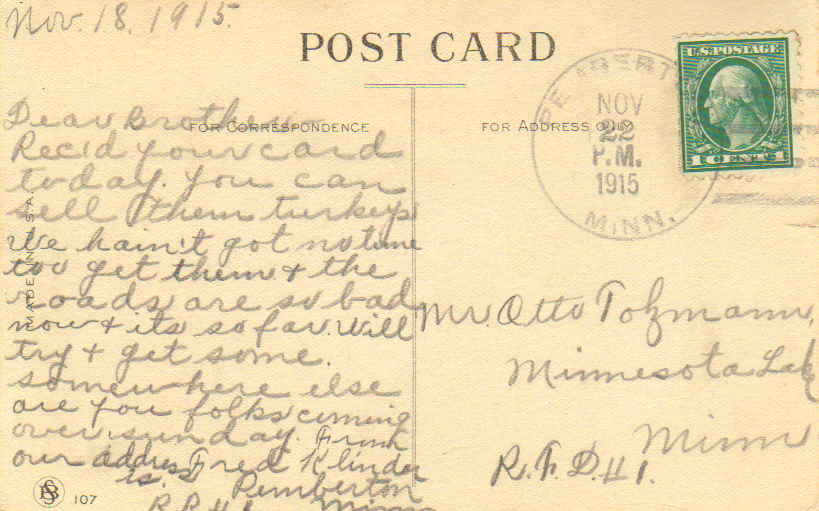 Nov. 18. 1915.
POST CARD
FOR CORRESPONDENCE
FOR ADDRESS ONLY
Dear Brother
Rec'd your card
today. You can
sell them turkeys
We hain't got no time
too get them & the
roads are so bad
now & its so far. Will
try & get some.
somewhere else
are you folks coming
over sunday. From
our address Fred Klinder
is. Pemberton
R R #1. Minn
MADE IN U.S.A.
107
NOV
22
P.M.
1915
MINN.
U.S. POSTAGE
1 CENT 1
Mr. Otto Tolzmann,
Minnesota Lake
Minn
R.F.D. #1.